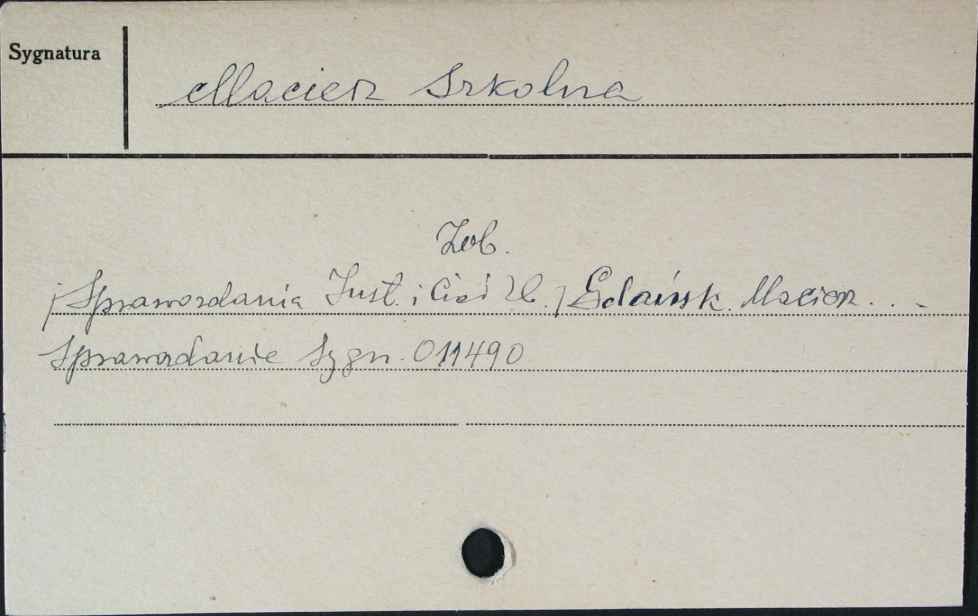 Sygnatura
Macierz Szkolna
Zob.
/Sprawozdania Inst. i Ciał Ub./ Gdańsk. Macierz . . .
Sprawozdanie Sygn. 011490